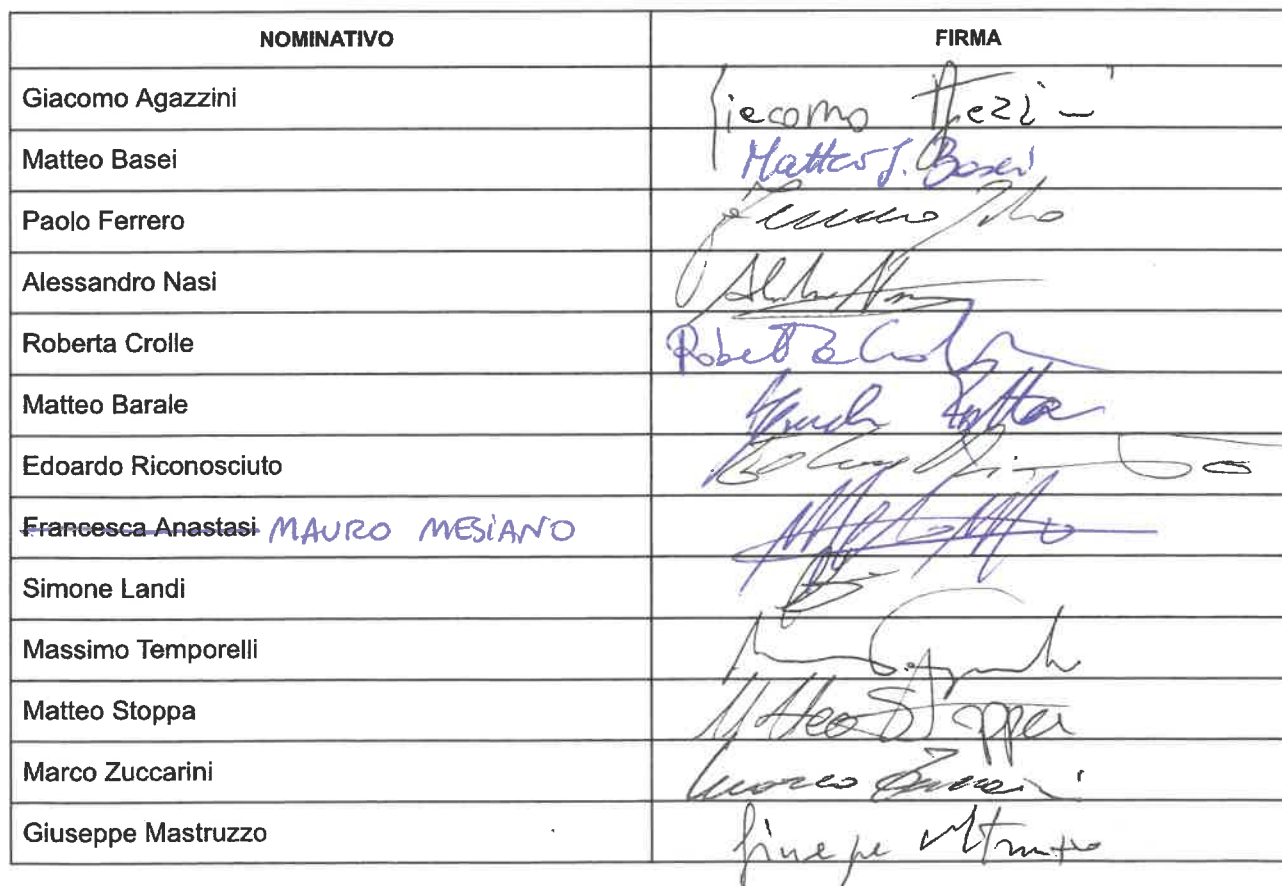 NOMINATIVO FIRMA
Giacomo Agazzini Giacomo
Matteo Basei Matteo J. Basei
Paolo Ferrero
Alessandro Nasi
Roberta Crolle Roberta
Matteo Barale
Edoardo Riconosciuto
Francesca Anastasi MAURO MESIANO
Simone Landi
Massimo Temporelli
Matteo Stoppa Matteo Stoppa
Marco Zuccarini Marco
Giuseppe Mastruzzo Giuseppe